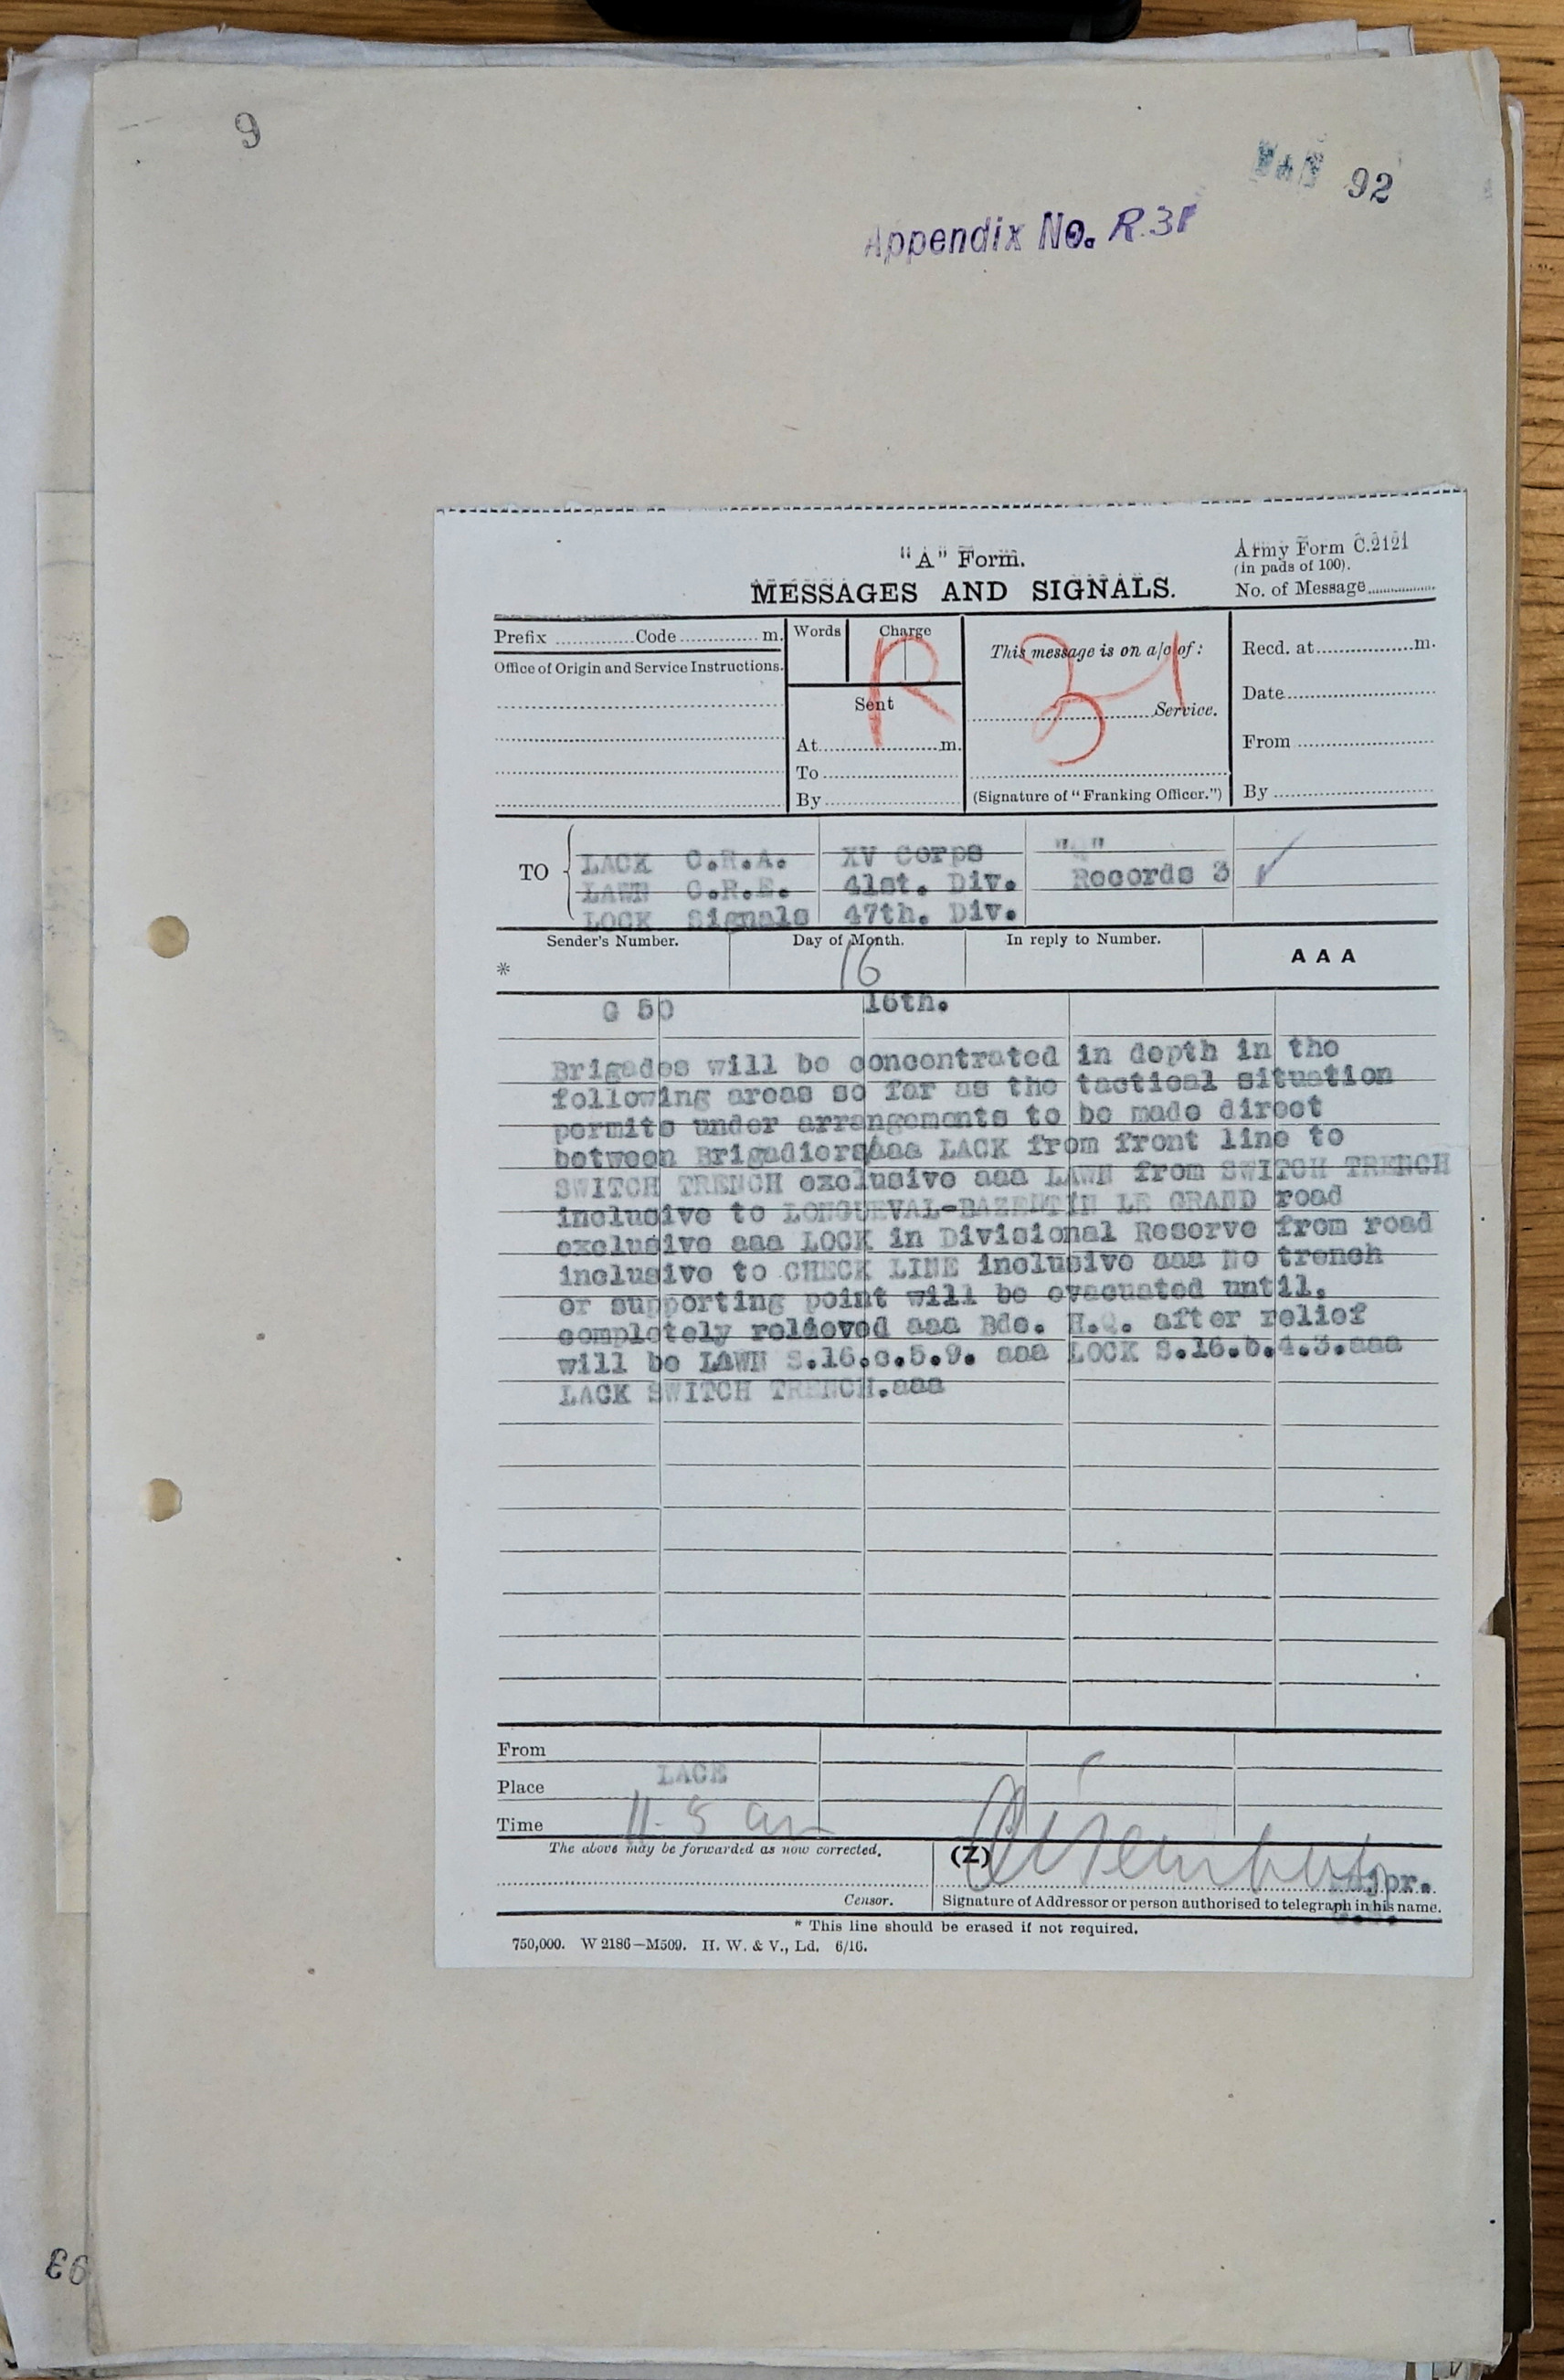 9
92
Appendix No. R.31
"A" Form.
Army Form C.2121
(in pads of 100).
MESSAGES AND SIGNALS.
No. of Message
Prefix Code m.
Words Charge
This message is on a/c of:
Recd. at m.
Office of Origin and Service Instructions.
R 31
Sent
Service.
Date
At m.
From
To
By
(Signature of "Franking Officer.")
By
TO
LACK C.R.A. XV Corps "Q"
LAWN C.R.E. 41st. Div. Records 3 ✓
LOCK Signals 47th. Div.
Sender's Number. Day of Month. In reply to Number.
* 16 A A A
G 50 16th.
Brigades will be concentrated in depth in the
following areas so far as the tactical situation
permits under arrangements to be made direct
between Brigadiers aaa LACK from front line to
SWITCH TRENCH exclusive aaa LAWN from SWITCH TRENCH
inclusive to LONGUEVAL-BAZENTIN LE GRAND road
exclusive aaa LOCK in Divisional Reserve from road
inclusive to CHECK LINE inclusive aaa No trench
or supporting point will be evacuated until.
completely relieved aaa Bde. H.Q. after relief
will be LAWN S.16.c.5.9. aaa LOCK S.16.b.4.3.aaa
LACK SWITCH TRENCH.aaa
From
Place LACE
Time 11-5 am
The above may be forwarded as now corrected.
(Z)
Major.
Censor.
Signature of Addressor or person authorised to telegraph in his name.
* This line should be erased if not required.
750,000. W 2186—M509. H. W. & V., Ld. 6/16.
93